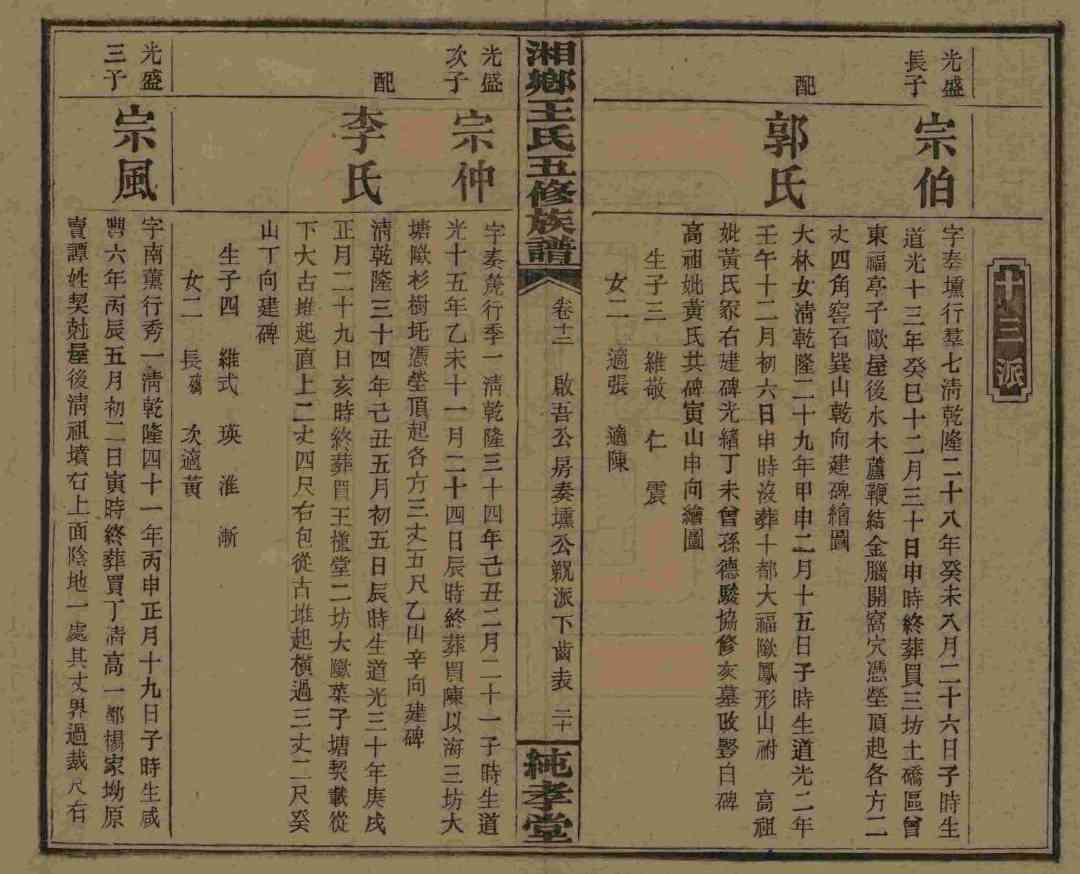 十三派
光盛
長子
宗伯
字奏壎行羣七清乾隆二十八年癸未八月二十六日子時生
道光十三年癸巳十二月三十日申時終葬買三坊土礄區曾
東福亭子歐屋後水木蘆鞭結金腦開窩穴憑塋頂起各方二
丈四角窖石巽山乾向建碑繪圖
配
郭氏
大林女清乾隆二十九年甲申二月十五日子時生道光二年
壬午十二月初六日申時沒葬十都大福歐鳳形山祔 高祖
妣黃氏冢右建碑光緒丁未曾孫德駿協修亥墓改豎白碑
高祖妣黃氏共碑寅山申向繪圖
生子三 維敬 仁 震
女二 適張 適陳
湘鄉王氏五修族譜
卷十三
啟吾公房奏壎公親派下齒表 二十
純孝堂
光盛
次子
宗仲
字奏篪行季一清乾隆三十四年己丑二月二十一子時生道
光十五年乙未十一月二十四日辰時終葬買陳以海三坊大
塘歐杉樹坵憑塋頂起各方三丈五尺乙山辛向建碑
配
李氏
清乾隆三十四年己丑五月初五日辰時生道光三十年庚戌
正月二十九日亥時終葬買王槐堂二坊大歐葉子塘契載從
下大古堆起直上二丈四尺右包從古堆起橫過三丈二尺癸
山丁向建碑
生子四 維式 瑛 淮 漸
女二 長殤 次適黃
光盛
三子
宗風
字南薰行秀一清乾隆四十一年丙申正月十九日子時生咸
豐六年丙辰五月初二日寅時終葬買丁清高一都楊家坳原
賣譚姓契尅屋後淸祖墳右上面陰地一處其丈界過裁尺右